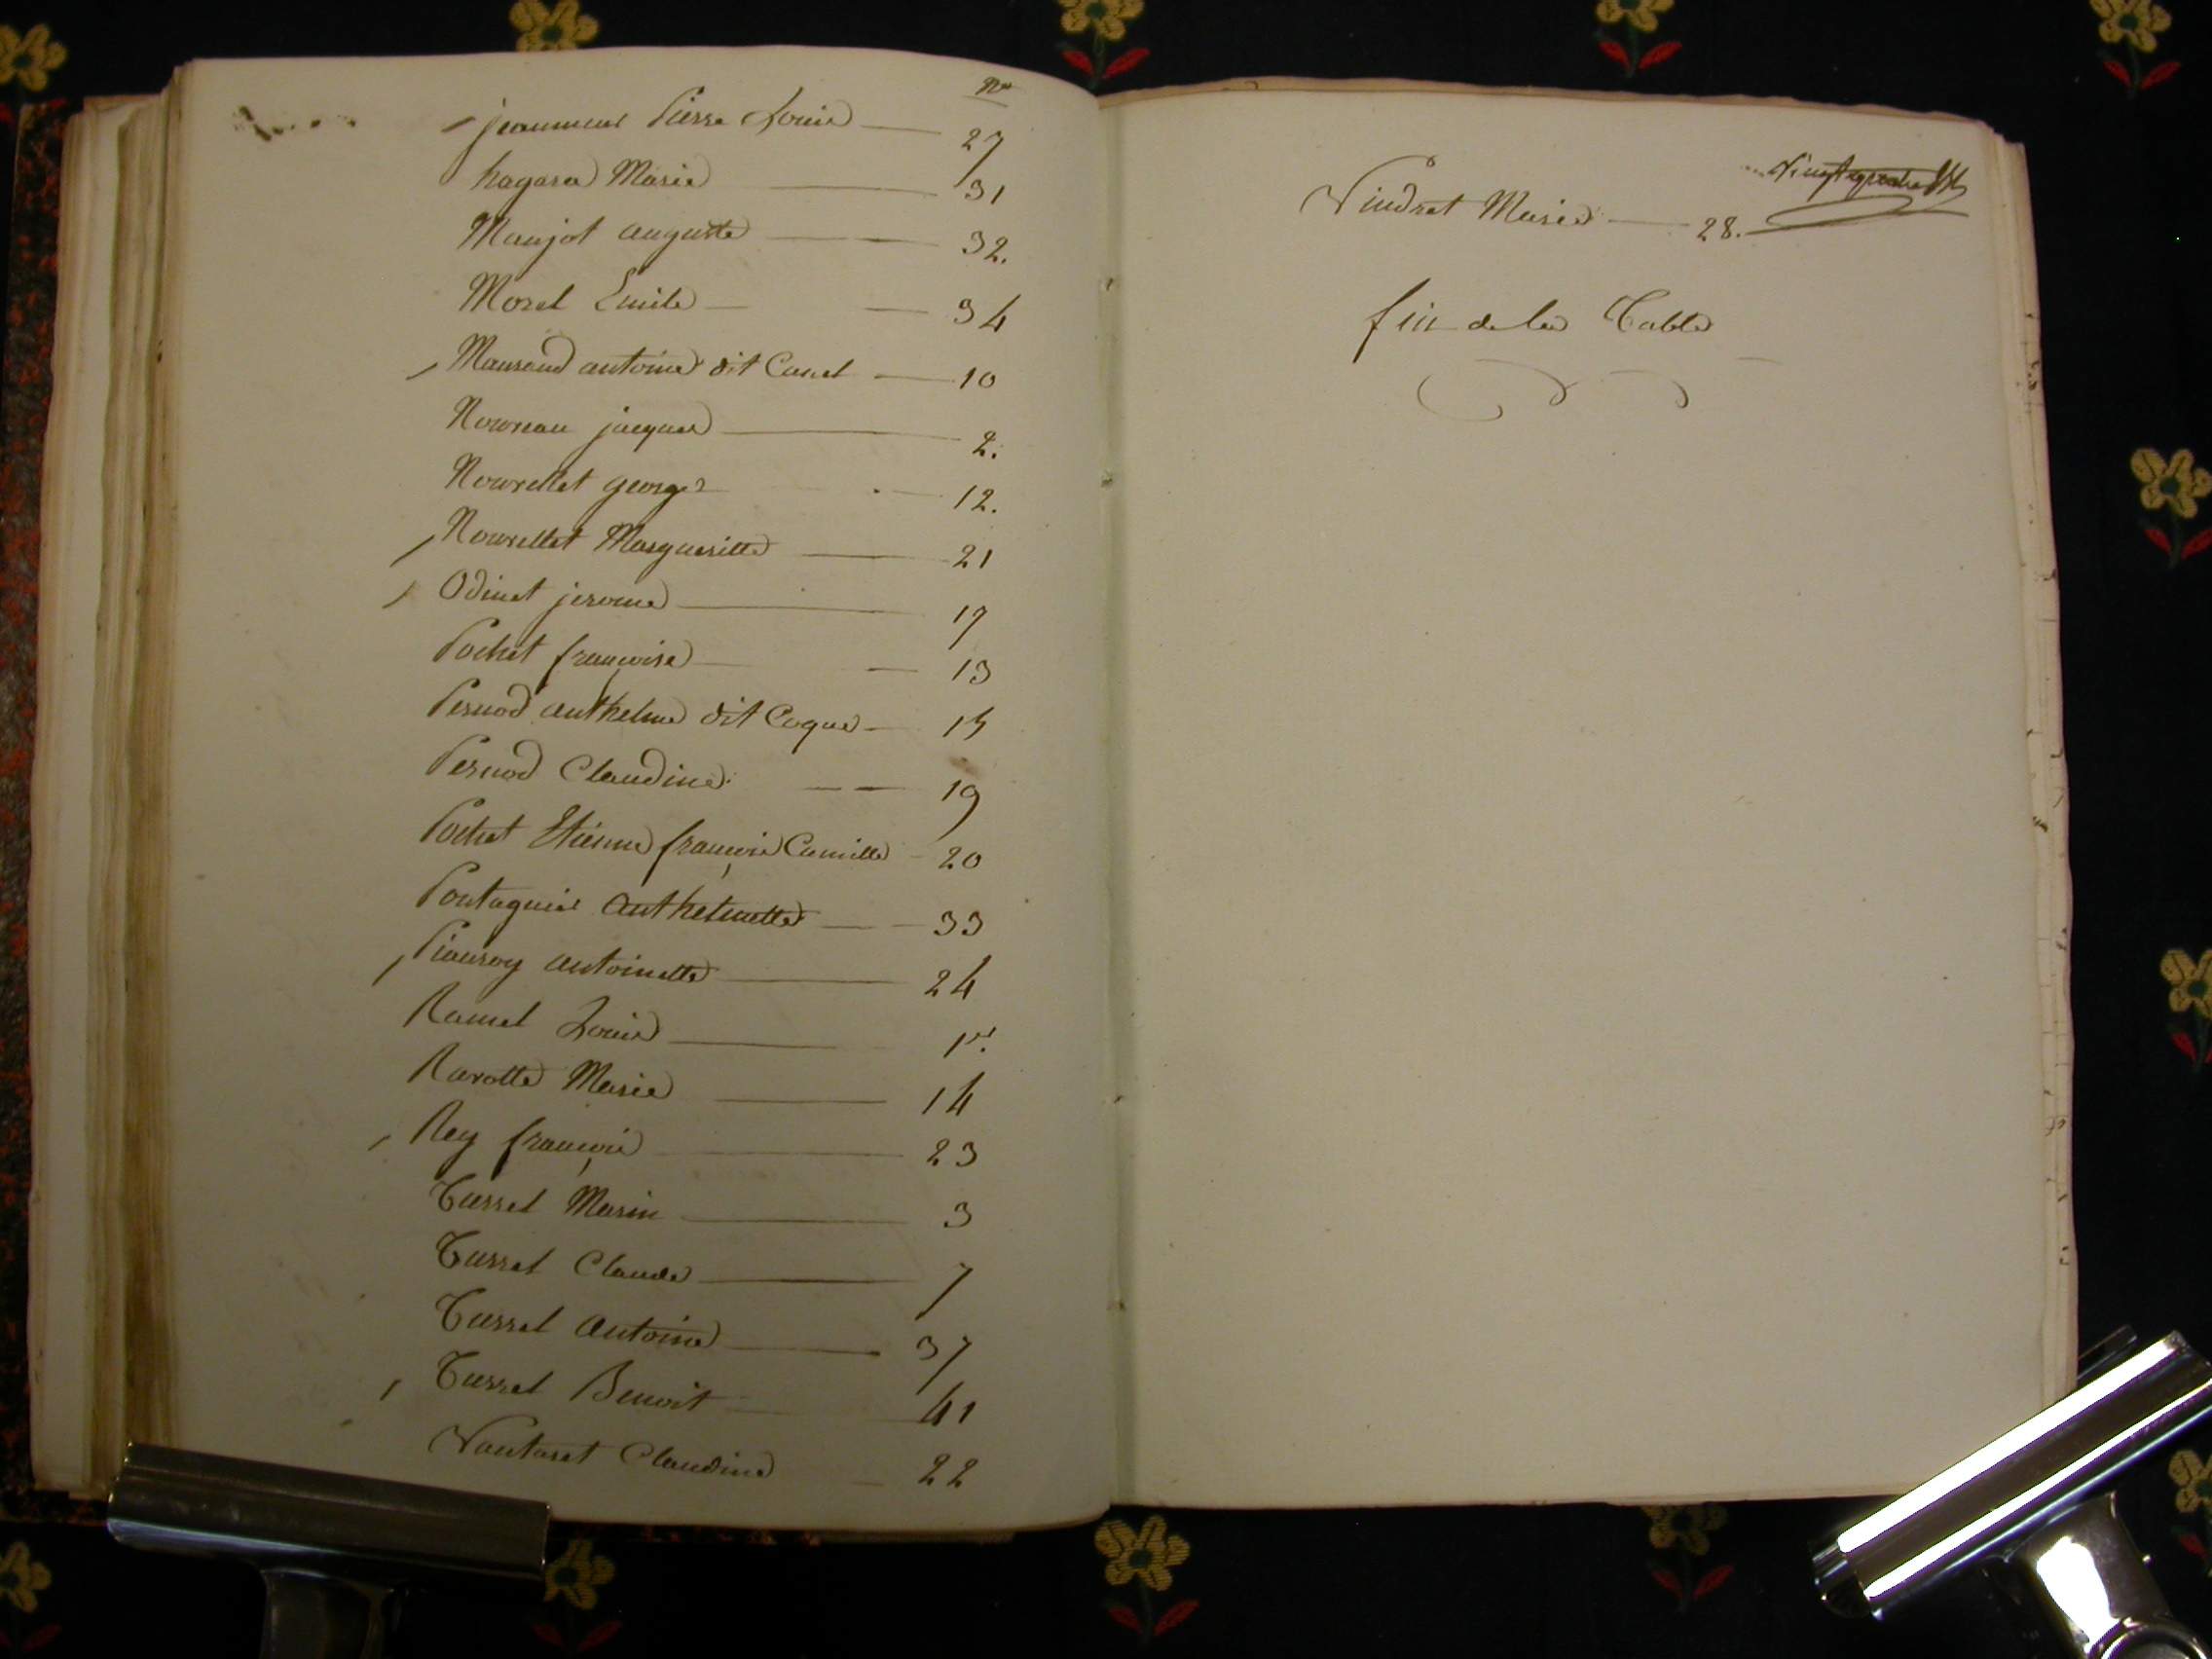 Nos
jeannenel Pierre Louis — 27
hagara Marie — 31
Maujot auguste — 32.
Morel Emile — 34
Mauraud antoine dit Canel — 10
Nouveau jacques — 2.
Nourellet george — 12.
Nourellet Margueritte — 21
Odinet jerome — 17
Pochet françoise — 13
Pernod anthelme dit Coque — 15
Pernod Claudine — 19
Pochet Etienne françois Camille — 20
Pontagnier Anthelmette — 33
antoinette — 24
Ramel Louis — 1er.
Ravotte Marie — 14
Rey françois — 23
Tissel Marin — 3
Tissel Claude — 7
Tissel antoine — 37
Tissel Benoit — 41
Vautaret Claudine — 22
Vingtquatre
Vindret Marie — 28.
fin de la Table